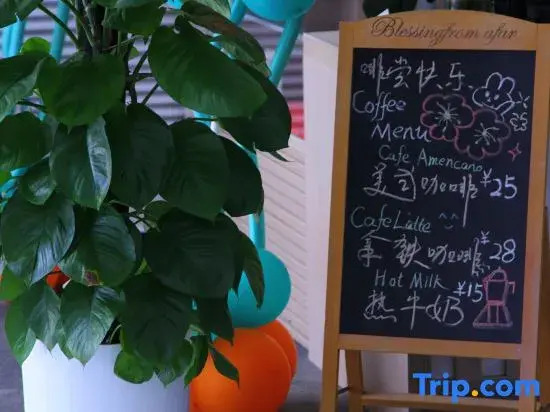 Blessingfrom afar
啡尝快乐
Coffee
Menu
Cafe Amencano
美式咖啡 ¥25
Cafe Latte ^^
拿铁咖啡 ¥28
Hot Milk
热牛奶 ¥15
Trip.com